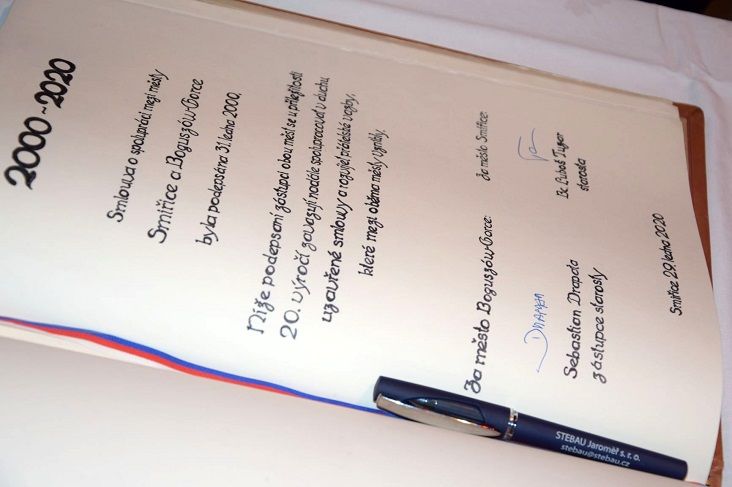 2000-2020
Smlouva o spolupráci mezi městy
Smiřice a Boguszów-Gorce
byla podepsána 31. ledna 2000.
Níže podepsaní zástupci obou měst se u příležitosti
20. výročí zavazují nadále spolupracovat v duchu
uzavřené smlouvy a rozvíjet přátelské vazby,
které mezi oběma městy vznikly.
Za město Boguszów-Gorce
Za město Smiřice:
Sebastian Drapala
zástupce starosty
Bc. Luboš Tuzar
starosta
Smiřice 29. ledna 2020
STEBAU Jaroměř s. r. o.
stebau@stebau.cz